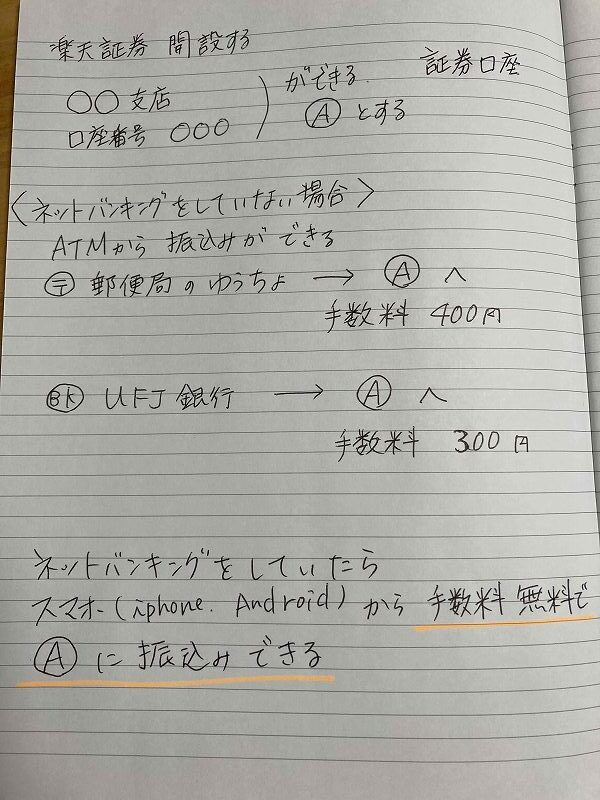 楽天証券 開設する
証券口座
○○支店
口座番号 ○○○
ができる.
Ⓐ とする
〈ネットバンキングをしていない場合〉
ATMから 振込みができる
〒 郵便局のゆうちょ → Ⓐ へ
手数料 400円
BK UFJ銀行 → Ⓐ へ
手数料 300円
ネットバンキングをしていたら
スマホー(iphone. Android)から 手数料 無料で
Ⓐ に 振込みできる